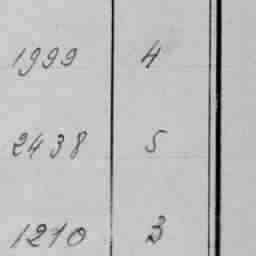 1999 4
2438 5
1210 3